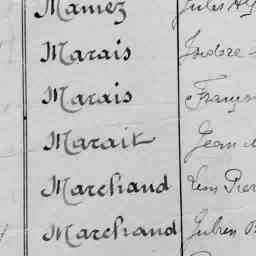 Mamez Jules
Marais Isidore
Marais Franço
Marait Jean
Marchand
Marchand Julien